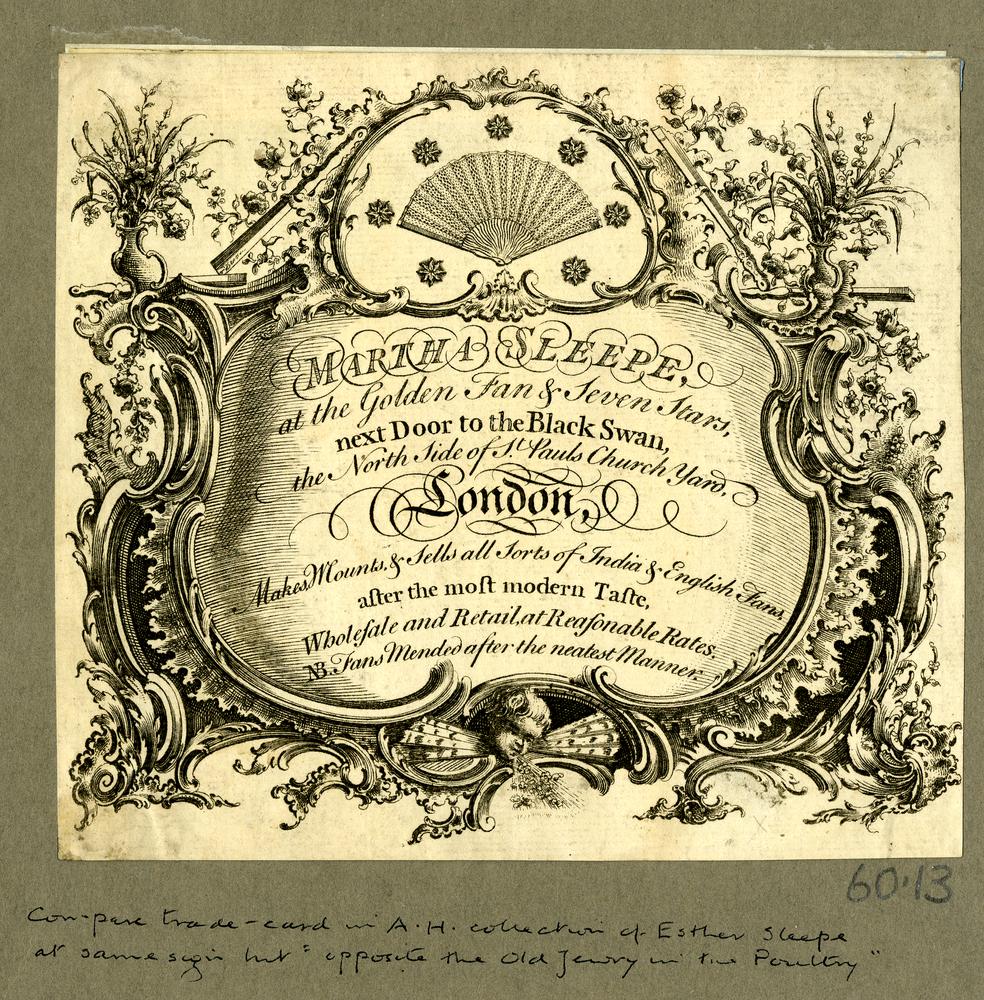 MARTHA SLEEPE,
at the Golden Fan & Seven Stars,
next Door to the Black Swan,
the North Side of St. Pauls Church Yard,
London,
Makes, Mounts, & Sells all Sorts of India & English Fans,
after the moſt modern Taſte,
Wholeſale and Retail, at Reaſonable Rates.
NB. Fans Mended after the neatest Manner.
60.13
Compare trade-card in A.H. collection of Esther Sleepe
at same sign but "opposite the Old Jewry in the Poultry"